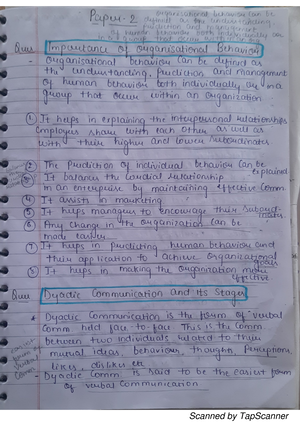 Paper-2
Organisational behaviour can be
defined as the understanding
prediction and management
of human behaviour both individually or
in a group that occur within an
Ques Importance of Organisational Behaviour
- Organisational behaviour can be defined as
the understanding, Prediction and management
of human behaviour both individually or in a
group that occur within an Organization
① It helps in explaining the Interpersonal relationships
Employees share with each other as well as
with their higher and lower Subordinates
② The Prediction of Individual behaviour can be explained
③ It balances the Cordial relationship
in an enterprise by maintaining effective Comm.
④ It assists in marketing
⑤ It helps managers to encourage their Subordinates
⑥ Any change in the Organization can be
made easier
⑦ It helps in predicting human behaviour and
their application to achieve Organizational goals
⑧ It helps in making the Organization more
effective
Ques Dyadic Communication and its Stages
Dyadic Communication is the form of verbal
Comm held face-to-face. This is the Comm.
between two individuals related to their
mutual ideas, behaviour, thoughts Perceptions
likes, dislikes etc
Dyadic Comm is said to be the easiest form
of verbal Communication
Scanned by TapScanner